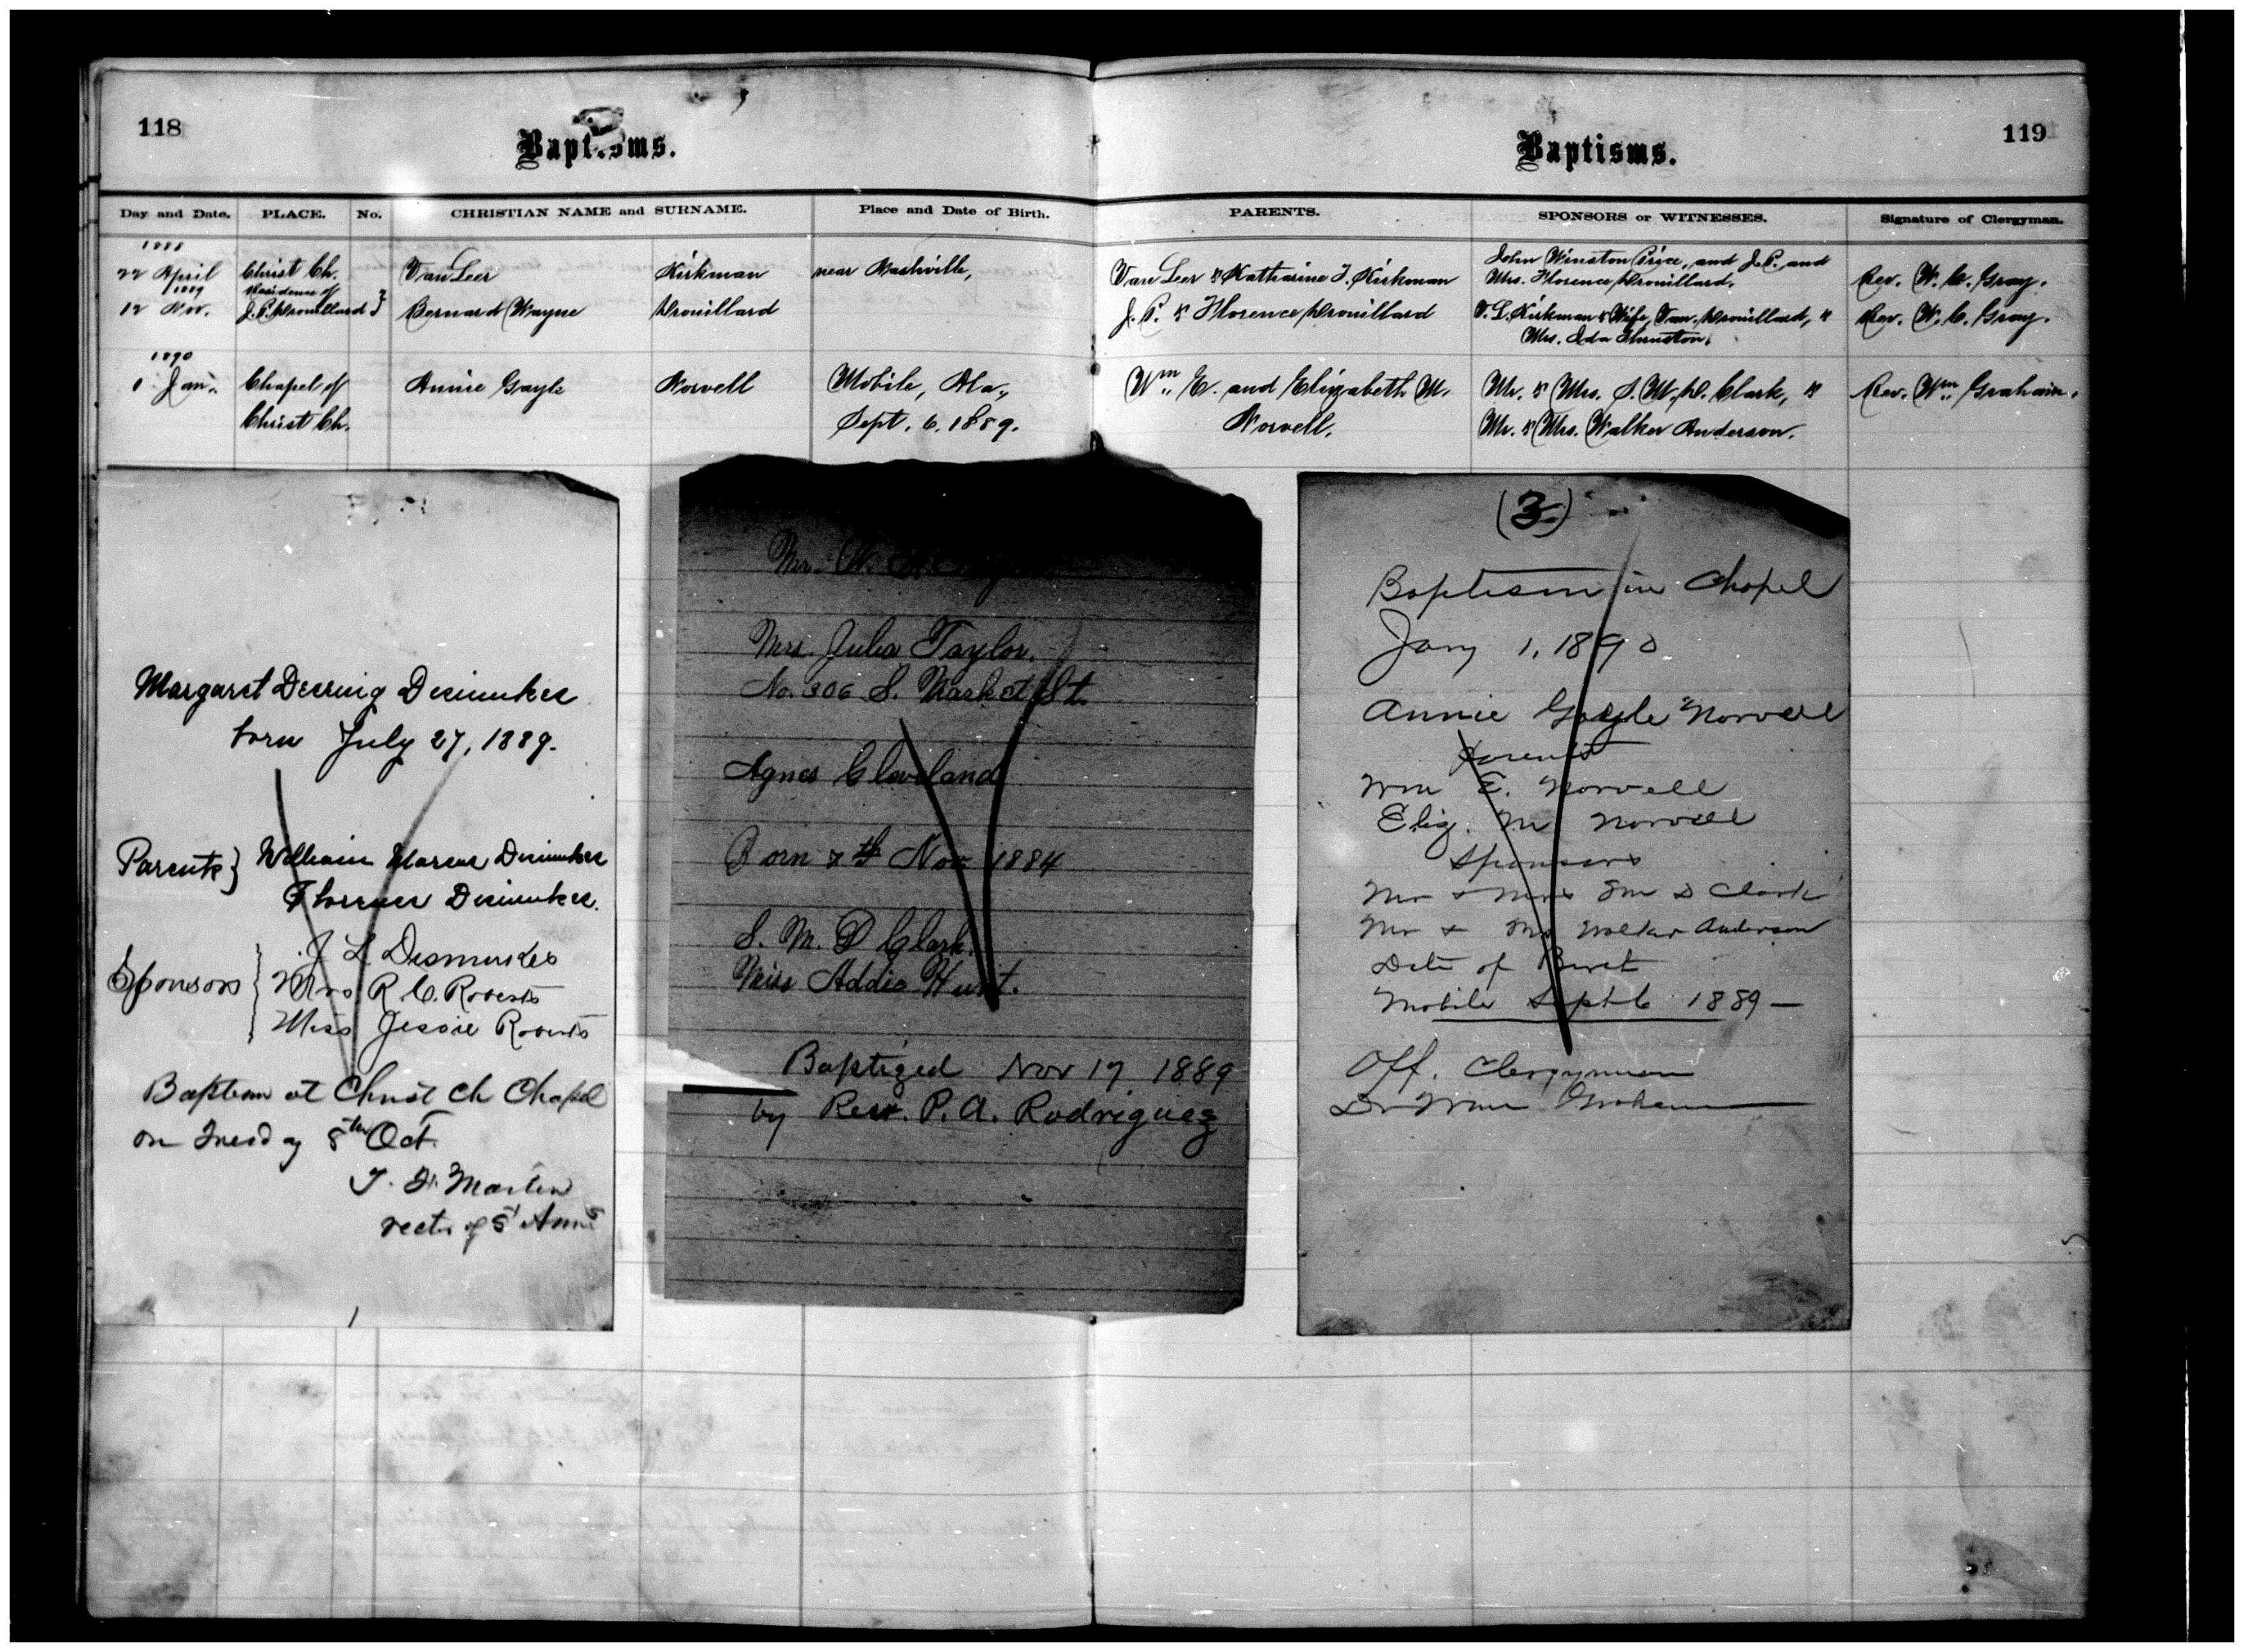 118
Baptisms.
Baptisms.
119
Day and Date.
PLACE.
No.
CHRISTIAN NAME and SURNAME.
Place and Date of Birth.
PARENTS.
SPONSORS or WITNESSES.
Signature of Clergyman.
1888
22 April
Christ Ch.
Van Leer
Kirkman
near Nashville,
Van Leer & Katharine T. Kirkman
John Winston Price, and J.P. and
Mrs. Florence Drouillard.
Rev. W. C. Gray.
1889
12 Nov.
Residence of
J.P. Drouillard }
Bernard Wayne
Drouillard
J. P. & Florence Drouillard
V. L. Kirkman & Wife, Van. Drouillard, &
Mrs. Ida Thruston.
Rev. W. C. Gray.
1890
1 Jan.
Chapel of
Christ Ch.
Annie Gayle
Norvell
Mobile, Ala.,
Sept. 6, 1889.
Wm. E. and Elizabeth M.
Norvell.
Mr. & Mrs. S. M. D. Clark, &
Mr. & Mrs. Walker Anderson.
Rev. Wm. Graham.
Margaret Deering Dismukes
born July 27, 1889.
Parents } William Marcus Dismukes
Florence Dismukes.
Sponsors { J L Dismukes
Mrs R. C. Roberts
Miss Jessie Roberts
Baptism at Christ Ch Chapel
on Tuesday 8th Oct.
T. F. Martin
rector of St Anns
Mr. W.
Mrs. Julia Taylor.
No. 306 S. Market St.
Agnes Cleveland
Born 7th Nov 1884
S. M. D Clark.
Miss Addie Hunt.
Baptized Nov 17 1889
by Rev. P. A. Rodriguez
(3)
Baptism in Chapel
Jany 1, 1890
Annie Gayle Norvell
Parents
Wm E. Norvell
Eliz. M Norvell
Sponsors
Mr & Mrs S M D Clark
Mr & Mrs Walker Anderson
Date of Birth
Mobile Sept 6 1889 —
Off. Clergyman
Dr Wm Graham